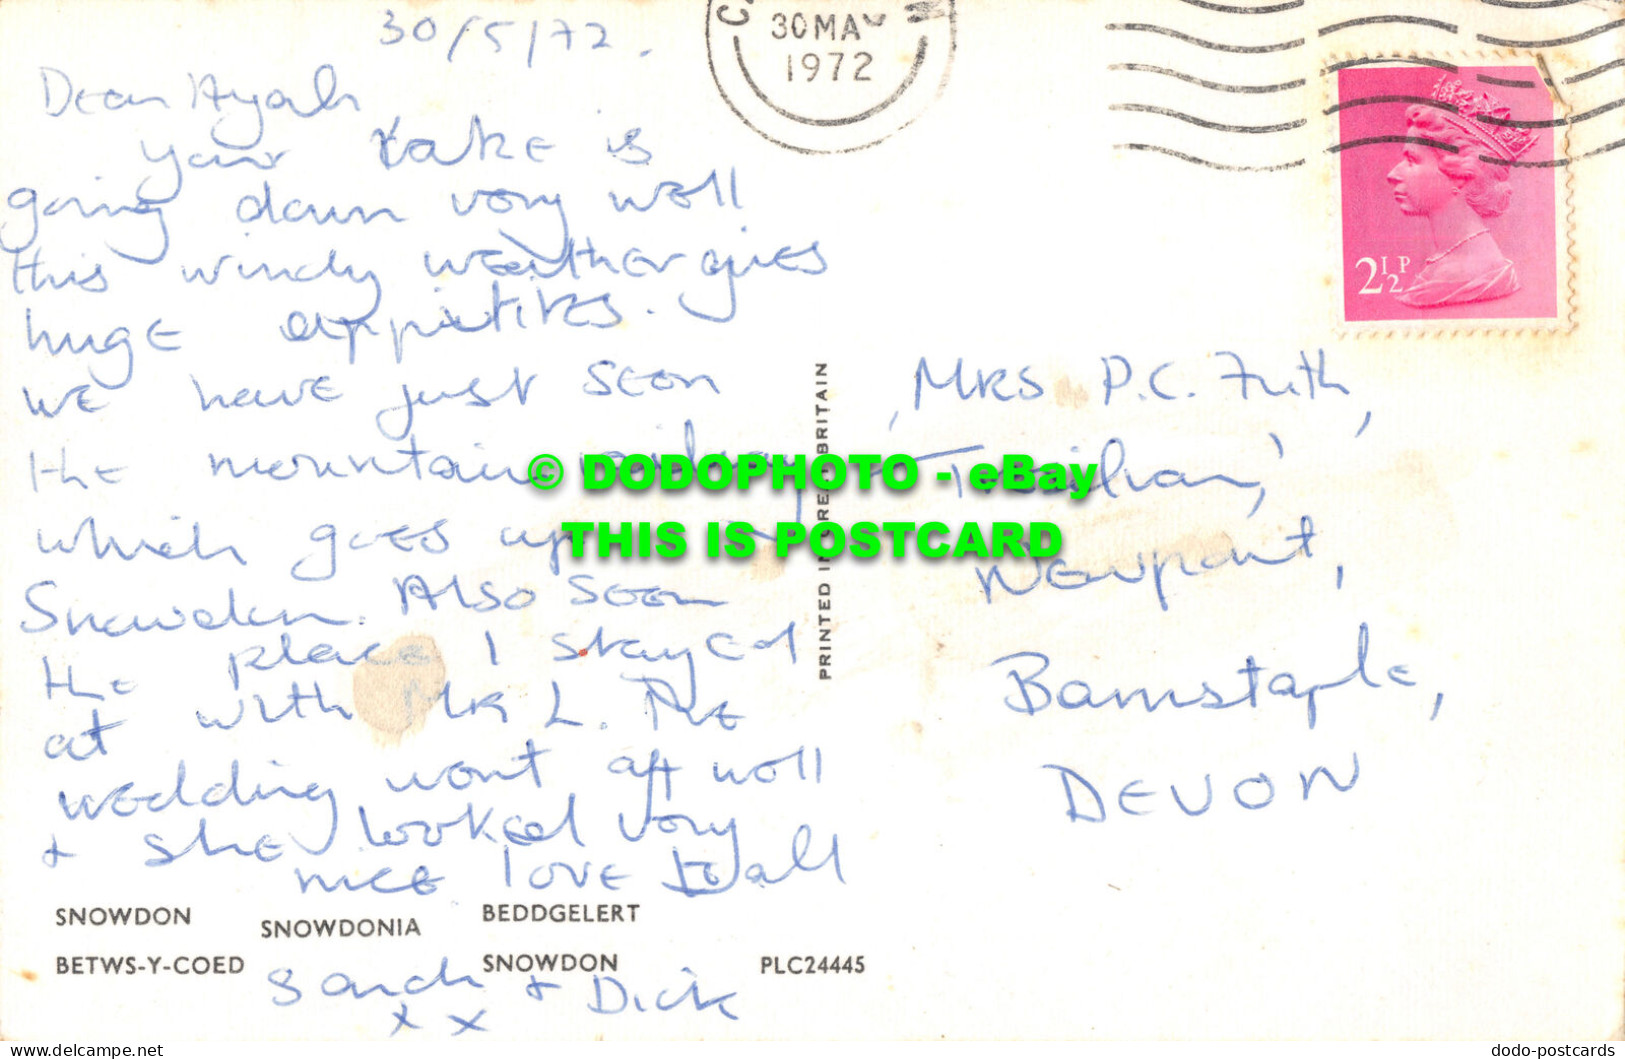 30/5/72.
30 MAY
1972
Dear Ayah
your cake is
going down very well
this windy weather gives
huge appetites.
we have just seen
the mountain railway
which goes up
Snowdon. Also seen
the place I stayed
at with Mr L. The
wedding went off well
& she looked very
nice love to all
Sarah & Dick
x x
2½P
Mrs P.C. Frith,
Newport,
Barnstaple,
DEVON
PRINTED IN GREAT BRITAIN
© DODOPHOTO - eBay
THIS IS POSTCARD
SNOWDON
SNOWDONIA
BEDDGELERT
BETWS-Y-COED
SNOWDON
PLC24445
https://www.delcampe.net
dodo-postcards